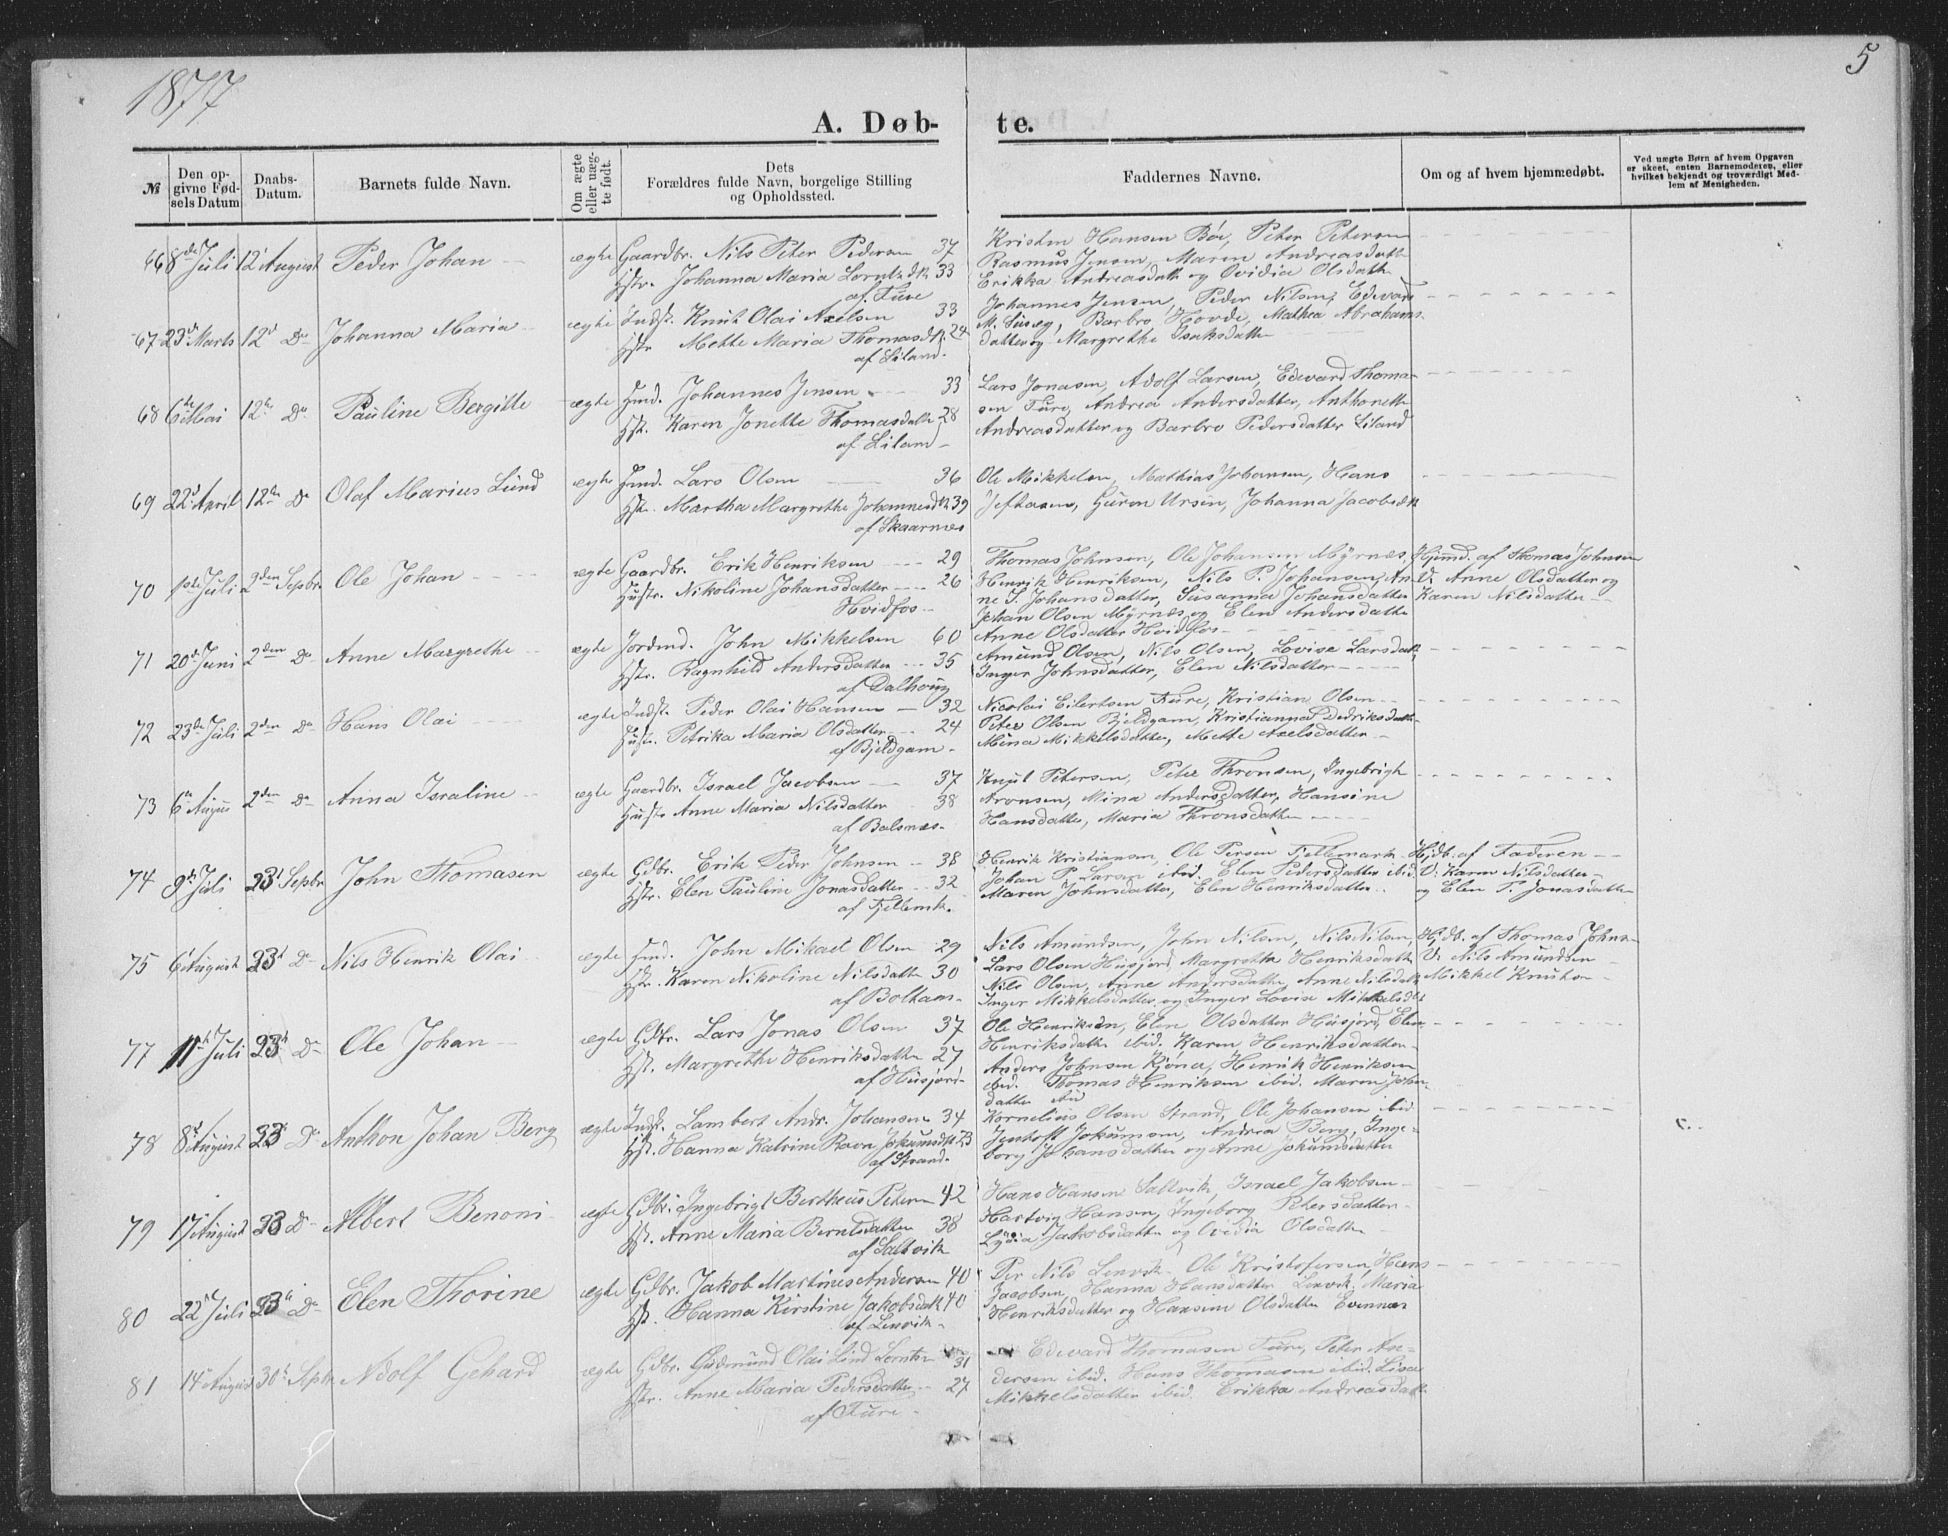 1877
5
A. Døb-
te.
№
Den op-
givne Fød-
sels Datum
Daabs-
Datum.
Barnets fulde Navn.
Om ægte
eller uæg-
te født.
Dets
Forældres fulde Navn, borgelige Stilling
og Opholdssted.
Faddernes Navne.
Om og af hvem hjemmedøbt.
Ved uægte Børn af hvem Opgaven
er skeet, enten Barnemoderen, eller
hvilket bekjendt og troværdigt Med-
lem af Menigheden.
66 8de Juli 12 August Peder Johan ægte Gaardbr. Nils Peter Pedersen 37
Hstr. Johanna Maria Lorntzdtr 33
af Fure
Kristen Hansen Bøe, Peter Petersen
Rasmus Jensen, Maren Andreasdatter
Erikka Andreasdatt og Ovidia Olsdatter
67 23d Marts 12d Do Johanna Maria ægte Indst. Knut Olai Axelsen 33
Hstr Mette Maria Thomasdtr. 24
af Liland.
Johannes Jensen, Peder Nilsen, Edevard
M. Barbro Hovde, Mathea Abrahams-
datter og Margrethe Isaksdatter
68 6te Mai 12te Do Pauline Bergitte ægte Inds. Johannes Jensen 33
Hst. Karen Jonette Thomasdatter 28
af Liland
Lars Jonasen, Adolf Larsen, Edevard Thoma-
sen Fure, Andrea Andersdatter, Anthonette
Andreasdatter og Barbro Pedersdatter Liland
69 22d April 12te Do Olaf Marius Lund ægte Inds. Lars Olsen 36
Hstr. Martha Margrethe Johannesdtr 39
af Skaarnes
Ole Mikkelsen, Mathias Johansen, Hans
Jeftasen, Guren Ursin, Johanna Jacobsdtr
70 1ste Juli 2den Sepbr Ole Johan ægte Gaardbr. Erik Henriksen 29
Hustr. Nikoline Johansdatter 26
Hvidfos
Thomas Johnsen, Ole Johansen Myrnæs,
Henrik Henriksen, Nils P. Johansen, An-
ne S. Johansdatter, Susanna Johansdatter
Johan Olsen Myrnæs og Elen Andersdatter
Anne Olsdatter Hvidfos
Hjemd. af Thomas Johnsen
V. Anne Olsdatter og
Karen Nilsdatter
71 20de Juni 2den Do Anne Margrethe ægte Jordmd. John Mikkelsen 60
Hstr. Ragnhild Andersdatter 35
af Dalhoug
Amund Olsen, Nils Olsen, Lovise Larsdatt
Inger Johnsdatter, Elen Nilsdatter
72 23de Juli 2den Do Hans Olai ægte Indst. Peder Olai Hansen 32
Hustr. Petrika Maria Olsdatter 24
af Bjeldgam
Nicolai Eilertsen Fure, Kristian Olsen
Peter Olsen Bjeldgam, Kristianna Dedriksdatter
Mina Mikkelsdatter, Mette Axelsdatter
73 6te Augus 2den Do Anna Israline ægte Gaardbr. Israel Jacobsen 37
Hustr Anne Maria Nilsdatter 38
af Balsnæs
Knut Petersen, Peter Thronsen, Ingebrigt
Aronsen, Mina Andersdatter, Hansine
Hansdatter, Maria Thronsdatter
74 9de Juli 23d Sepbr John Thomasen ægte Gdbr. Erik Peder Johnsen 38
Hstr. Elen Pauline Jonasdatter 32
af Fjellemk.
Henrik Kristiansen, Ole Persen Fjellemark
Johan P. Larsen ibid. Elen Pedersdatter ibid
Maren Johnsdatter, Elen Henriksdatter
Hjdb. af Faderen
V. Karen Nilsdatter
og Elen P. Jonasdatter
75 6t August 23d Do Nils Henrik Olai ægte Inds. John Mikael Olsen 29
Hstr. Karen Nikoline Nilsdatter 30
af Boltaas
Nils Amundsen, John Nilsen, Nils Nilsen,
Lars Olsen Husjord, Margrethe Henriksdatter
Nils Olsen, Anne Andersdatter, Anne Nilsdatter
Inger Mikkelsdatter og Inger Lovise Mikkelsdtr
Hjdb. af Thomas Johns-
V. Nils Amundsen
Mikkel Knutsen
77 11te Juli 23d Do Ole Johan ægte Gdbr. Lars Jonas Olsen 37
Hst. Margrethe Henriksdatter 27
af Husjord
Ole Henriksen, Elen Olsdatter Husjord, Elen
Henriksdatter ibid. Karen Henriksdatter
Anders Johnsen Kjønæ, Henrik Henriksen
ibid. Thomas Henriksen ibid. Maren John-
datter
78 8t August 23d Do Anthon Johan Berg ægte Indst. Lambert Andr. Johansen 34
Hst. Hanna Katrine Ravn Jokumsdtr 23
af Strand.
Kornelius Olsen Strand, Ole Johansen ibid
Jentoft Jokumsen, Andrea Berg, Inge-
borg Johansdatter og Anne Jokumsdatter
79 17 August 23d Do Albert Benoni ægte Gdbr. Ingebrigt Bertheus Petersen 42
Hst. Anne Maria Berntsdatter 38
af Saltvik
Hans Hansen Saltvik, Israel Jakobsen
Hartvig Hansen, Ingeborg Petersdatter
Lydia Jakobsdatter og Ovidia Olsdatter
80 22d Juli 23d Do Elen Thorine ægte Gdbr. Jakob Martines Andersen 40
Hst. Hanna Kirstine Jakobsdatt 40
af Lenvik
Per Nils Lenvik. Ole Kristofersen, Hans
Jacobsen, Hanna Hansdatter Lenvik, Maria
Henriksdatter og Hansine Olsdatter Evennæs
81 14 August 30te Sepbr Adolf Gehard ægte Gdbr. Gudmund Olai Lind Lornts- 31
Hstr. Anne Maria Pedersdatter 27
af Fure
Edevard Thomasen Fure, Peter An-
dersen ibid. Hans Thomasen ibid. Lisa
Mikkelsdatter ibid. Erikka Andreasdatt